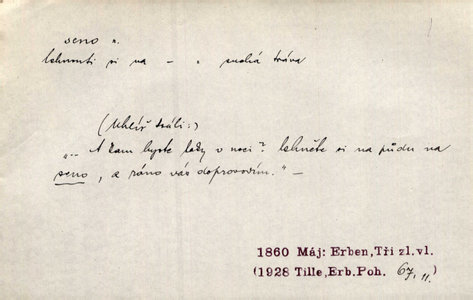 seno n.
lehnouti si na – n suchá tráva
(Uhlíř králi:)
"... A kam byste teky v noci? Lehněte si na půdu na
seno, a ráno vás doprovodím." –
1860 Máj: Erben, Tři zl. vl.
(1928 Tille, Erb. Poh. 67, 11.